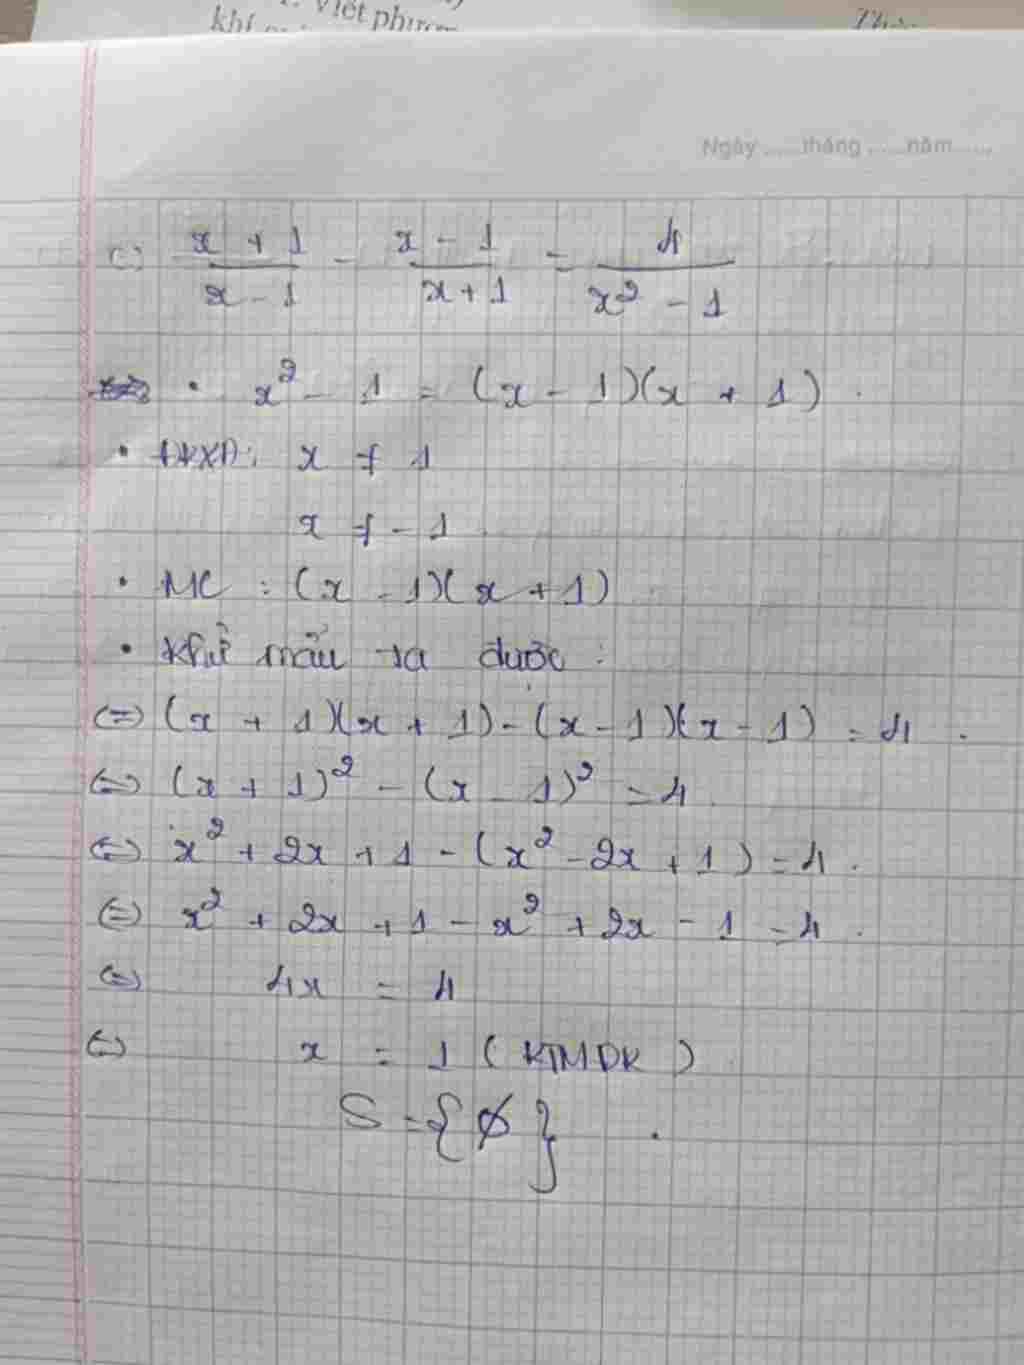 Viết phương
khí
Ngày ......tháng ......năm......
c) \frac{x + 1}{x - 1} - \frac{x - 1}{x + 1} = \frac{4}{x² - 1}
• x² - 1 = (x - 1)(x + 1).
• ĐKXĐ: x ≠ 1
x ≠ - 1
• MC : (x - 1)(x + 1)
• Khử mẫu ta được :
(=) (x + 1)(x + 1) - (x - 1)(x - 1) = 4.
(=) (x + 1)² - (x - 1)² = 4.
(=) x² + 2x + 1 - (x² - 2x + 1) = 4.
(=) x² + 2x + 1 - x² + 2x - 1 = 4.
(=) 4x = 4
(=) x = 1 (KTMĐK)
S = {∅}.